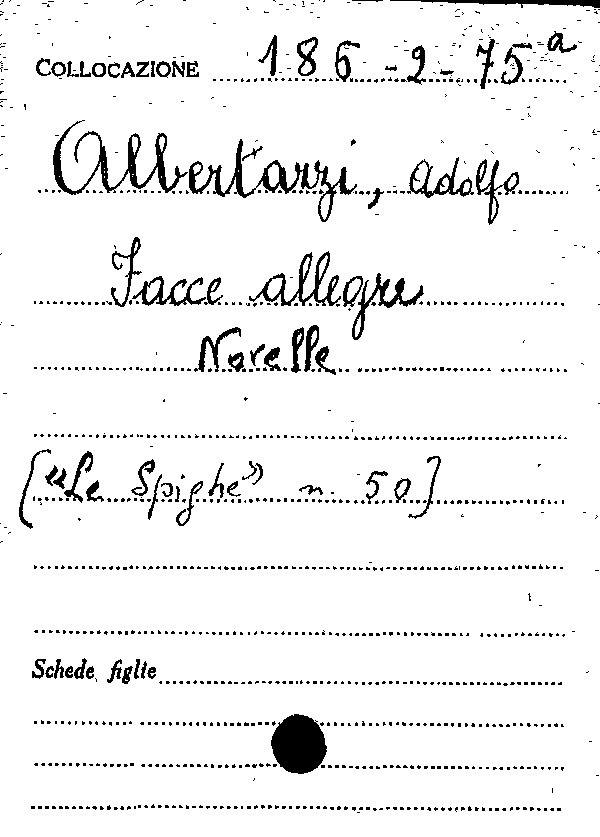 COLLOCAZIONE 186-2-75ª
Albertazzi, Adolfo
Facce allegre
Novelle
[«Le Spighe» n. 50]
Schede figlie